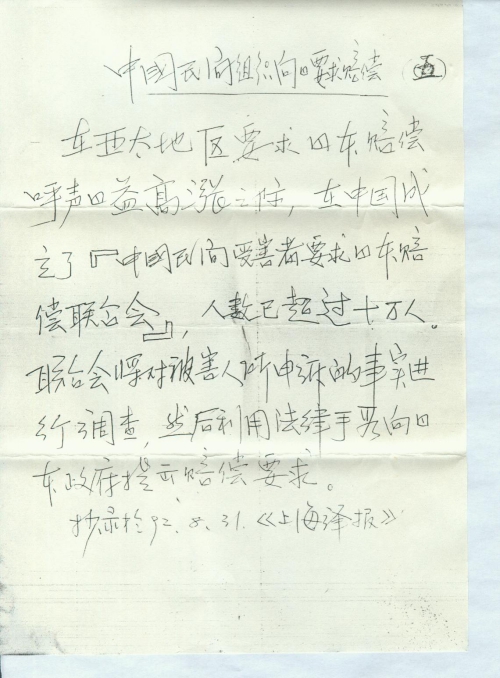 中國民间组织向日要求赔偿 (五)
在亚太地区要求日本赔偿
呼声日益高涨之际，在中国成
立了『中國民间受害者要求日本赔
偿联合会』，人数已超过十万人。
联合会将对被害人所申诉的事实进
行调查，然后利用法律手段向日
本政府提出赔偿要求。
抄录於92.8.31.《上海译报》